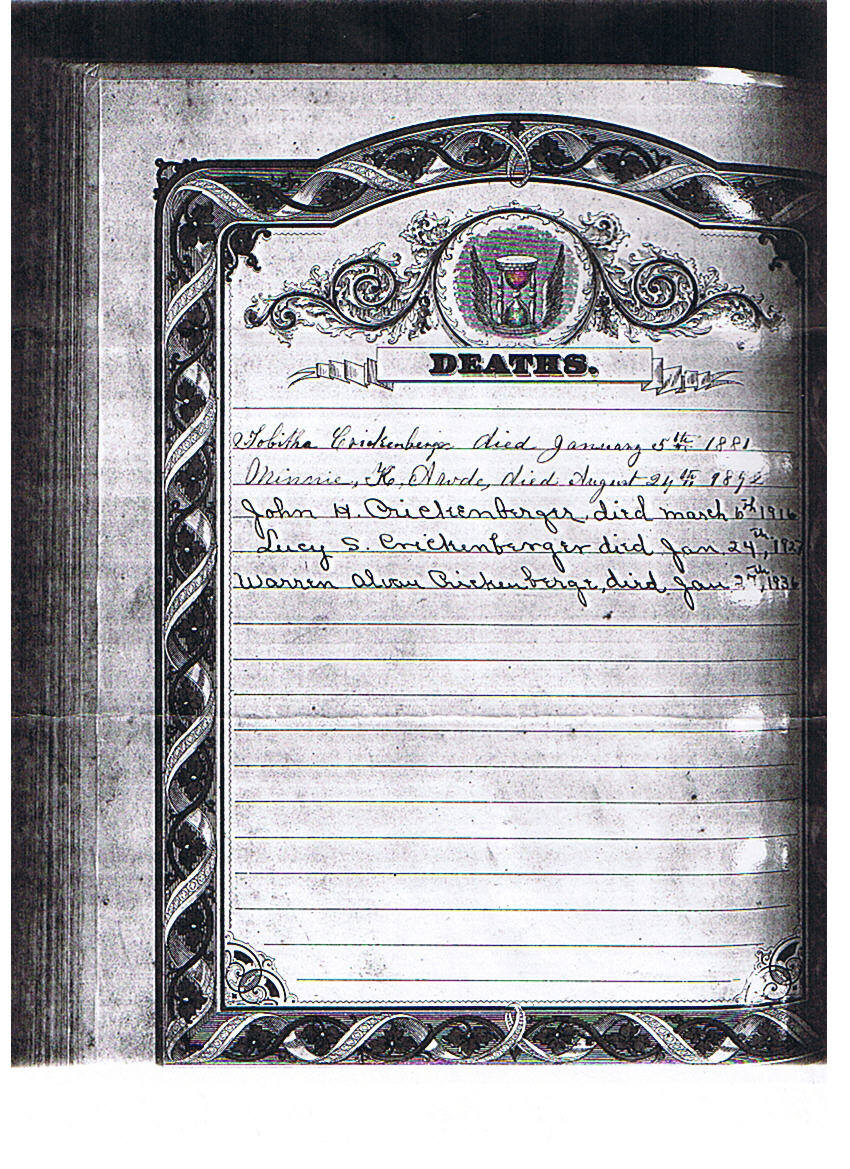 DEATHS.
Tobitha Crickenberger died January 5th 1881
Minnie, K, Arode, died August 29th 1892
John H. Crickenberger, died march 6th 1916
Lucy S. Crickenberger died Jan 24th, 192
Warren Crickenberge, died Jan 27th, 1936